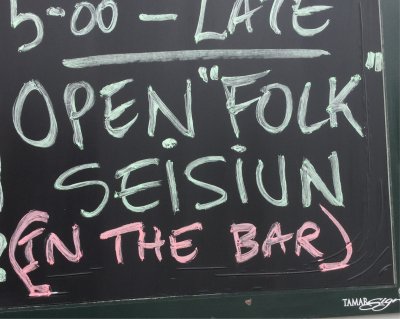 5-00 - LATE
OPEN "FOLK"
SEISIUN
(IN THE BAR)
TAMAR Signs